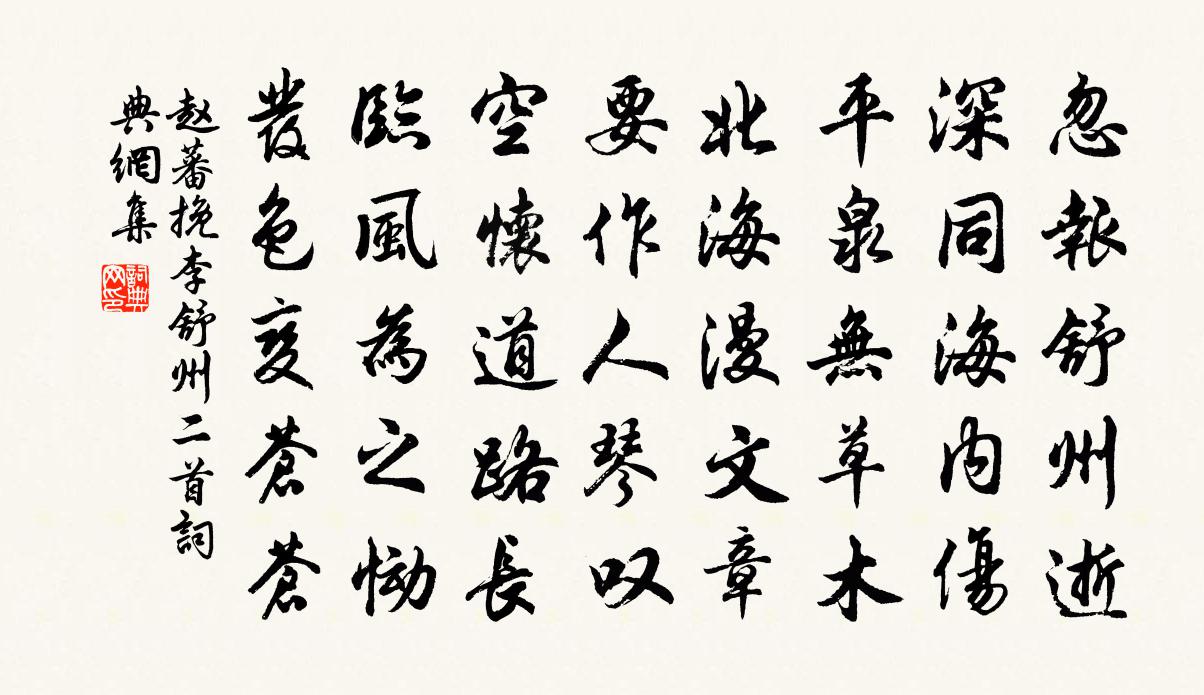 忽報舒州逝
深同海内傷
平泉無草木
北海漫文章
要作人琴叹
空懷道路長
臨風為之慟
髮色變蒼蒼
赵蕃挽李舒州二首詞
典網集
詞典网印